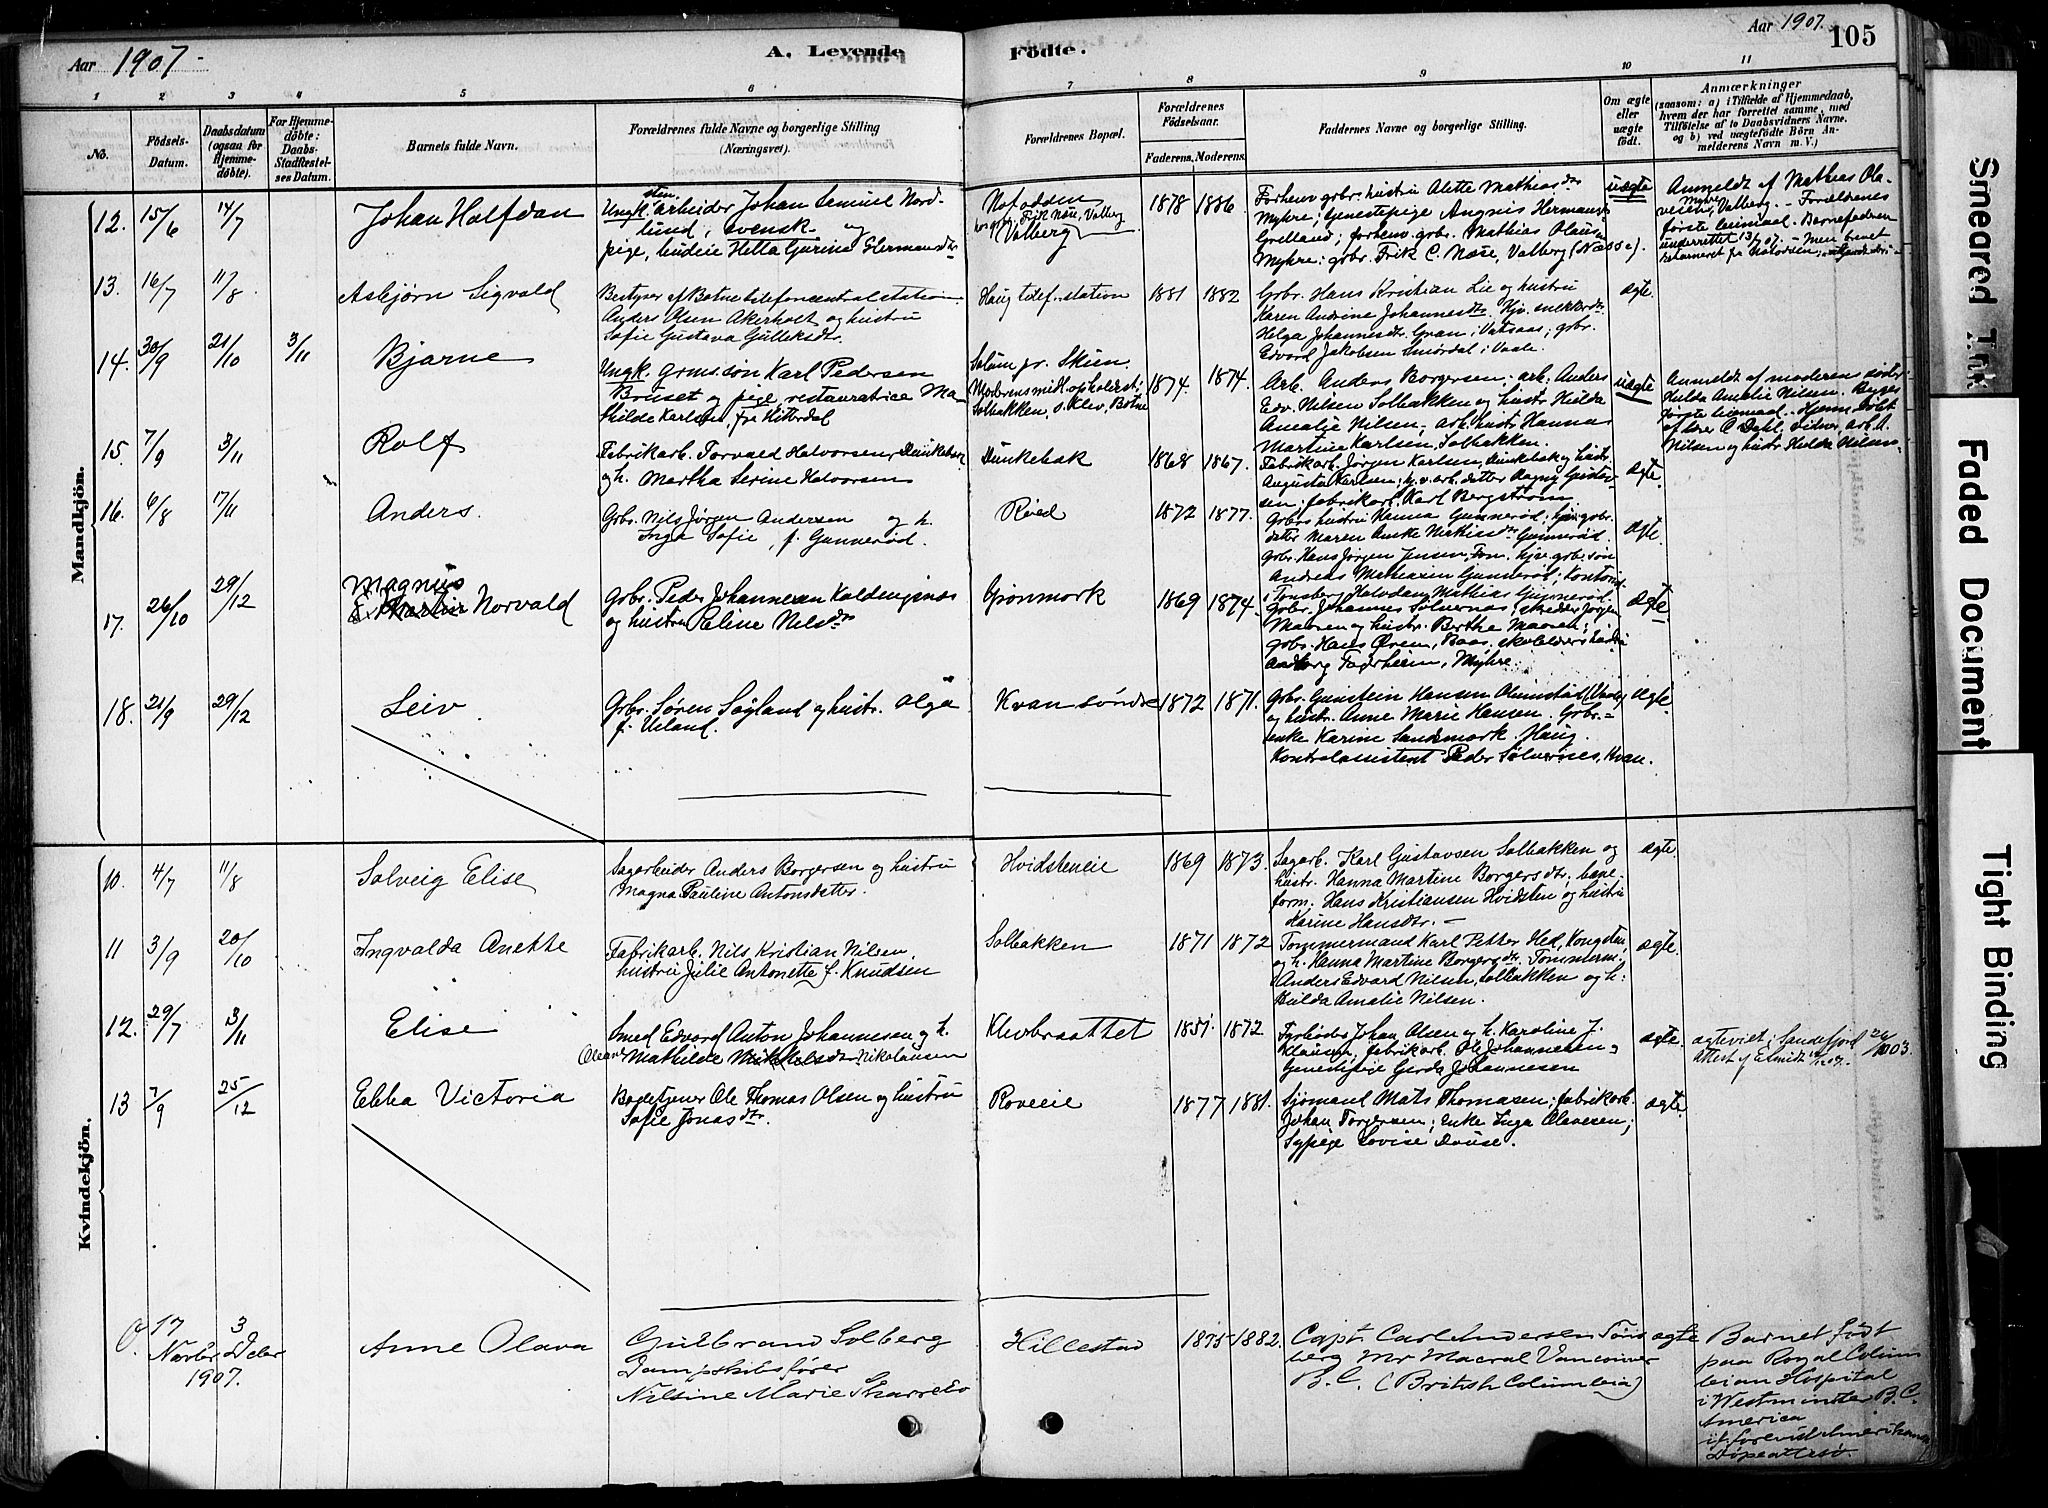 Aar 1907.
A. Levende
Födte.
Aar 1907.
105
1 2 3 4 5 6 7 8 9 10 11
No.
Födsels-
Datum.
Daabsdatum
(ogsaa for
Hjemme-
døbte).
For Hjemme-
döbte:
Daabs-
Stadfæstel-
ses Datum.
Barnets fulde Navn.
Forældrenes fulde Navne og borgerlige Stilling
(Næringsvei).
Forældrenes Bopæl.
Forældrenes
Födselsaar.
Faderens. Moderens.
Faddernes Navne og borgerlige Stilling.
Om ægte
eller
uægte
födt.
Anmærkninger
(saasom: a) i Tilfælde af Hjemmedaab,
hvem der har forrettet samme, med
Tilföielse af to Daabsvidners Navne.
og b) ved uægtefödte Börn An-
melderens Navn m. V.)
Mandkjön.
12. 15/6 14/7
Johan Halfdan
Ungk. arbeider Johan Samuel Nord-
sten
lund, svensk og
pige, budeie Hetta Gurine Hermansdtr
Notodden
Valberg
1878 1886
Forhenv. grbr. hustru Alette Mathiasdtr
Myhre; tjenestepige Angnis Hermansdtr
Grelland; forhenv. grbr. Mathias Olausen
Myhre; grbr. Frik C. Næse, Valberg (Næsse).
uægte
Anmeldt af Mathias Ola-
vesen, Myhre, Valberg. - Forældrenes
første leiermaal. Barnefaderen
underrettet 13/7 07. - Men brevet
returneret fr. Notodden,
13. 16/7 11/8
Asbjørn Sigvald
Bestyrer af Botne telefoncentralstation
Anders Olsen Akerholt og hustru
Sofie Gustava Gulleksdtr.
Haug telef.station
1881 1882
Grbr. Hans Kristian Lie og hustru
Karen Andrine Johannesdtr.
Helga Johannesdtr. Gran i Vatsaas; grbr.
Edvard Jakobsen Smørdal i Vaale.
ægte.
14. 30/9 21/10 3/11
Bjarne
Ungk. grms. søn Karl Pedersen
Bruset og pige, restauratrice Ma-
thilde Karlsen fra Hitterdal
Solum pr. Skien.
Moderens midl. opholdsst:
Solbakken, o. Klev, Botne
1874. 1874.
Arb. Anders Borgersen; arb. Anders
Edv. Nilsen Solbakken og hustr. Hulda
Amalie Nilsen; arb. hustr. Hanna
Martine Karlsen, Solbakken.
uægte
Anmeldt af moderens søster
Hulda Amalie Nilsen. Begges
første leiermaal. Hjemmedøbt
af lærer C. Dahl. Vidner, arb. A.
Nilsen og hustr. Hulda Nilsen.
15. 7/9 3/11
Rolf
Fabrikarb. Torvald Halvorsen, Dunkebæk
og h. Martha Serine Halvorsen
Dunkebak
1868 1867.
Fabrikarb. Jørgen Karlsen, Dunkebak og hustr
Augusta Karlsen; g. v. arb. datter Dagny Gustav-
sen; fabrikarb. Karl Bergstrøm.
ægte.
16. 6/8 17/11
Anders.
Grbr. Nils Jørgen Andersen og h.
Inga Sofie, f. Gunnerød.
Røed
1872 1877.
Grbrs hustru Hanna Gunnerød; grbr.
datter Maren Anke Mathiasdtr Gunnerød.
Grbr. Hans Jørgen Jensen, Fon. Hjv. grbr. søn
Andreas Mathiasen Gunnerød; Kontorist
i Tønsberg Halvdan Mathias Gunnerød.
ægte.
17. 26/10 29/12
Magnus
Norvald
Grbr. Peder Johannesen Holdengjenæs
og hustru Eline Nilsdtr
Grönmork
1869 1874.
Grbr. Johannes Sølvernas; skræder Jørgen
Maasen og hustr. Berthe Maasen;
grbr. Hans Øren, Baas, skolelærers hustru
Andborg Fagerheim, Myhre.
ægte
18. 21/9 29/12
Leiv.
Grbr. Søren Søyland og hustr. Olga
f. Ueland.
Kvan søndre
1872 1871.
Grbr. Gunstein Hansen Olumstad (Vaale)
og hustr. Anne Marie Hansen. Grbr.-
enke Karine Sandsmark. Haug.
Kontrolassistent Peder Sølvernes, Kvan.
ægte.
Kvindekjön.
10. 4/7 11/8
Solveig Elise
Sagarbeider Anders Borgersen og hustru
Magna Pauline Antonsdatter.
Hvidsteneie
1869 1873.
Sagarb. Karl Gustavsen Solbakken og
hustr. Hanna Martine Borgersdtr; bane-
form. Hans Kristiansen Hvidsten og hustru
Karine Hansdtr. -
ægte.
11 3/9 20/10
Ingvalda Anette
Fabrikarb. Nils Kristian Nilsen,
hustru Julie Antonette f. Knudsen
Solbakken
1871 1872
Tømmermand Karl Petter Hed, Kongsten,
og h. Hanna Martine Borgersdtr. Tømmerm.
Anders Edvard Nilsen, Solbakken og h:
Hulda Amalie Nilsen.
ægte.
12. 29/7 3/11
Elise
Smed Edvard Anton Johannesen og h.
Oleane Mathilde Nikolausen
Klevbraattet
1851. 1872
Fyrbøder Johan Olsen og h. Karoline J.
Klausen, fabrikarb. Ole Johannesen,
tjenestpige Gerda Johannesen
ægte.
ægteviet i Sandefjord 26/1903.
13 7/9 25/12
Ebba Victoria
Bogetjener Ole Thomas Olsen og hustru
Sofie Jonasdtr.
Roveeie
1877 1881.
Sjømand Mats Thomasen; fabrikarb.
Johan Torgersen; enke Inga Olavesen;
Sypige Lovise Douse.
ægte.
0. 17 Novbr 3 Debr
1907.
Anne Olava
Gulbrand Solberg
Dampskibsfører
Nilsine Marie Skarrebo
Hillestad
1875 1882.
Capt. Carl Andersen Töns
berg Mr Macral Vancouver
B.C. (British Columbia)
ægte
Barnet født
paa Royal Colum
beian Hospital
i Westminster B.C.
America
if. forevist Amerikansk
Døpeattest.
Smeared Ink
Faded Document
Tight Binding